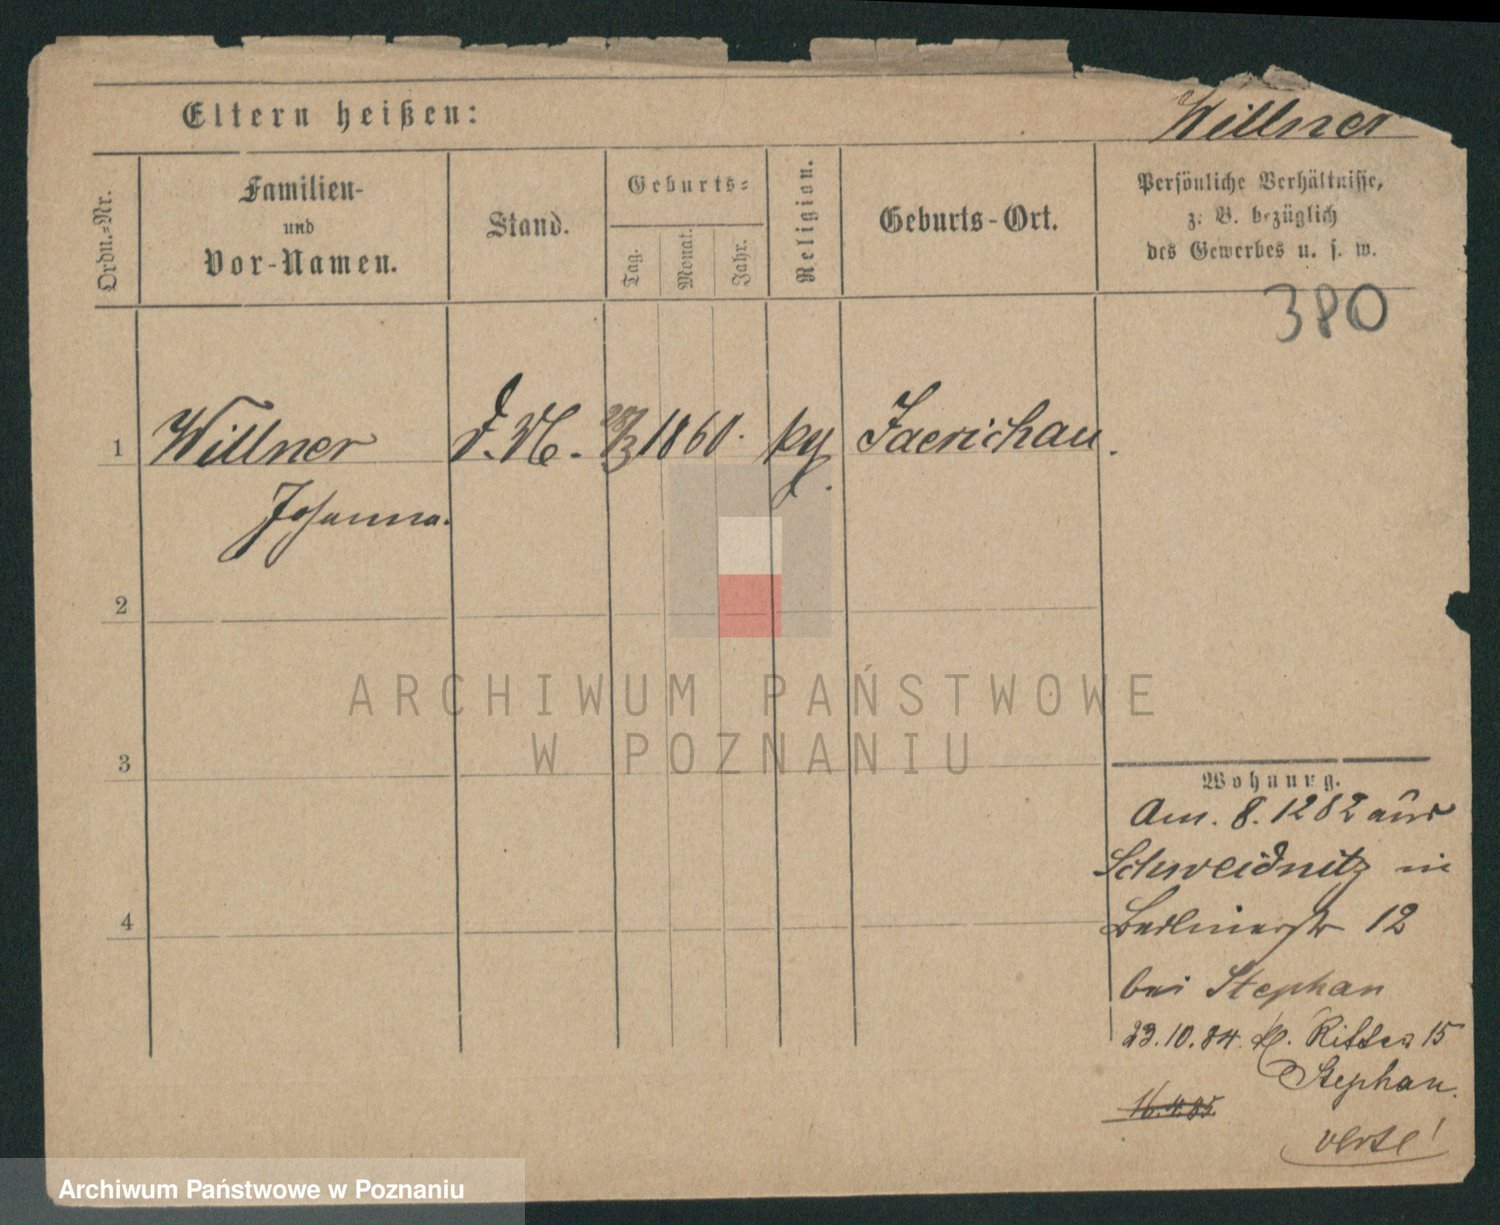 Eltern heißen:
Willner
Ordn.-Nr.
Familien-
und
Vor-Namen.
Stand.
Geburts-
Tag.
Monat.
Jahr.
Religion.
Geburts-Ort.
Persönliche Verhältnisse,
z. B. bezüglich
des Gewerbes u. s. w.
380
1 Willner 1860. Jaerichau.
Johanna.
2
3
4
ARCHIWUM PAŃSTWOWE
W POZNANIU
Wohnung.
Am. 8. 12 82 aus
Schweidnitz in
Berlinerstr 12
bei Stephan
23.10.84. Ritter 15
Stephan.
16.4.85
verte!
Archiwum Państwowe w Poznaniu